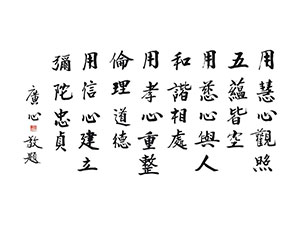 用慧心觀照
五蘊皆空
用慈心與人
和諧相處
用孝心重整
倫理道德
用信心建立
彌陀忠貞
廣心敬題